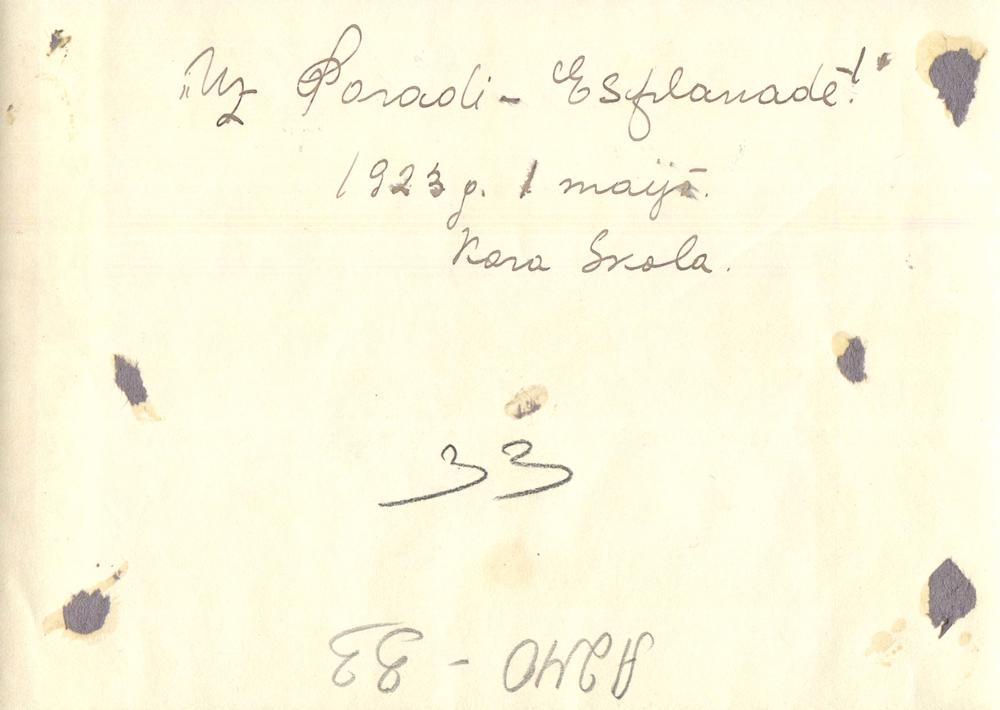 „Uz Paradi - Esplanadē!"
1923 g. 1 maijā.
Kara Skola.
33
A240 - 33